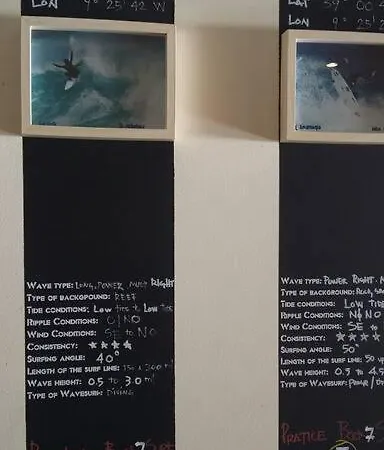 LON 9° 25' 42 W
WAVE TYPE: LONG, POWER, RIGHT
TYPE OF BACKGROUND: REEF
TIDE CONDITIONS: LOW TIDE to LOW TIDE
RIPPLE CONDITIONS: O/NO
WIND CONDITIONS: SE to NO
CONSISTENCY: ★★★★
SURFING ANGLE: 40°
LENGTH OF THE SURF LINE: 150 a 300 m
WAVE HEIGHT: 0.5 to 3.0 m
TYPE OF WAVESURF:
7
LAT 39° 00
LON 9° 25'
WAVE TYPE: POWER RIGHT,
TYPE OF BACKGROUND: ROCK,
TIDE CONDITIONS: LOW TIDE
RIPPLE CONDITIONS: NO
WIND CONDITIONS: SE to
CONSISTENCY: ★★★★
SURFING ANGLE: 50°
LENGTH OF THE SURF LINE: 50
WAVE HEIGHT: 0.5 to 4.5
TYPE OF WAVESURF: POWER
PRATICE 7